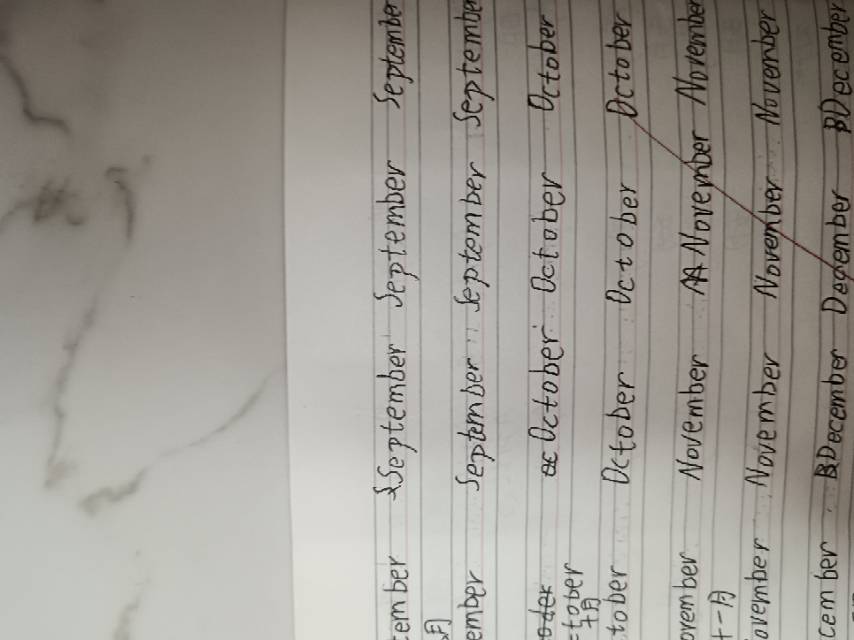 tember September September September
月
ember September September September
October October October
tober
十月
tober October October October
ovember November November November
十一月
ovember November November November
cember December December December